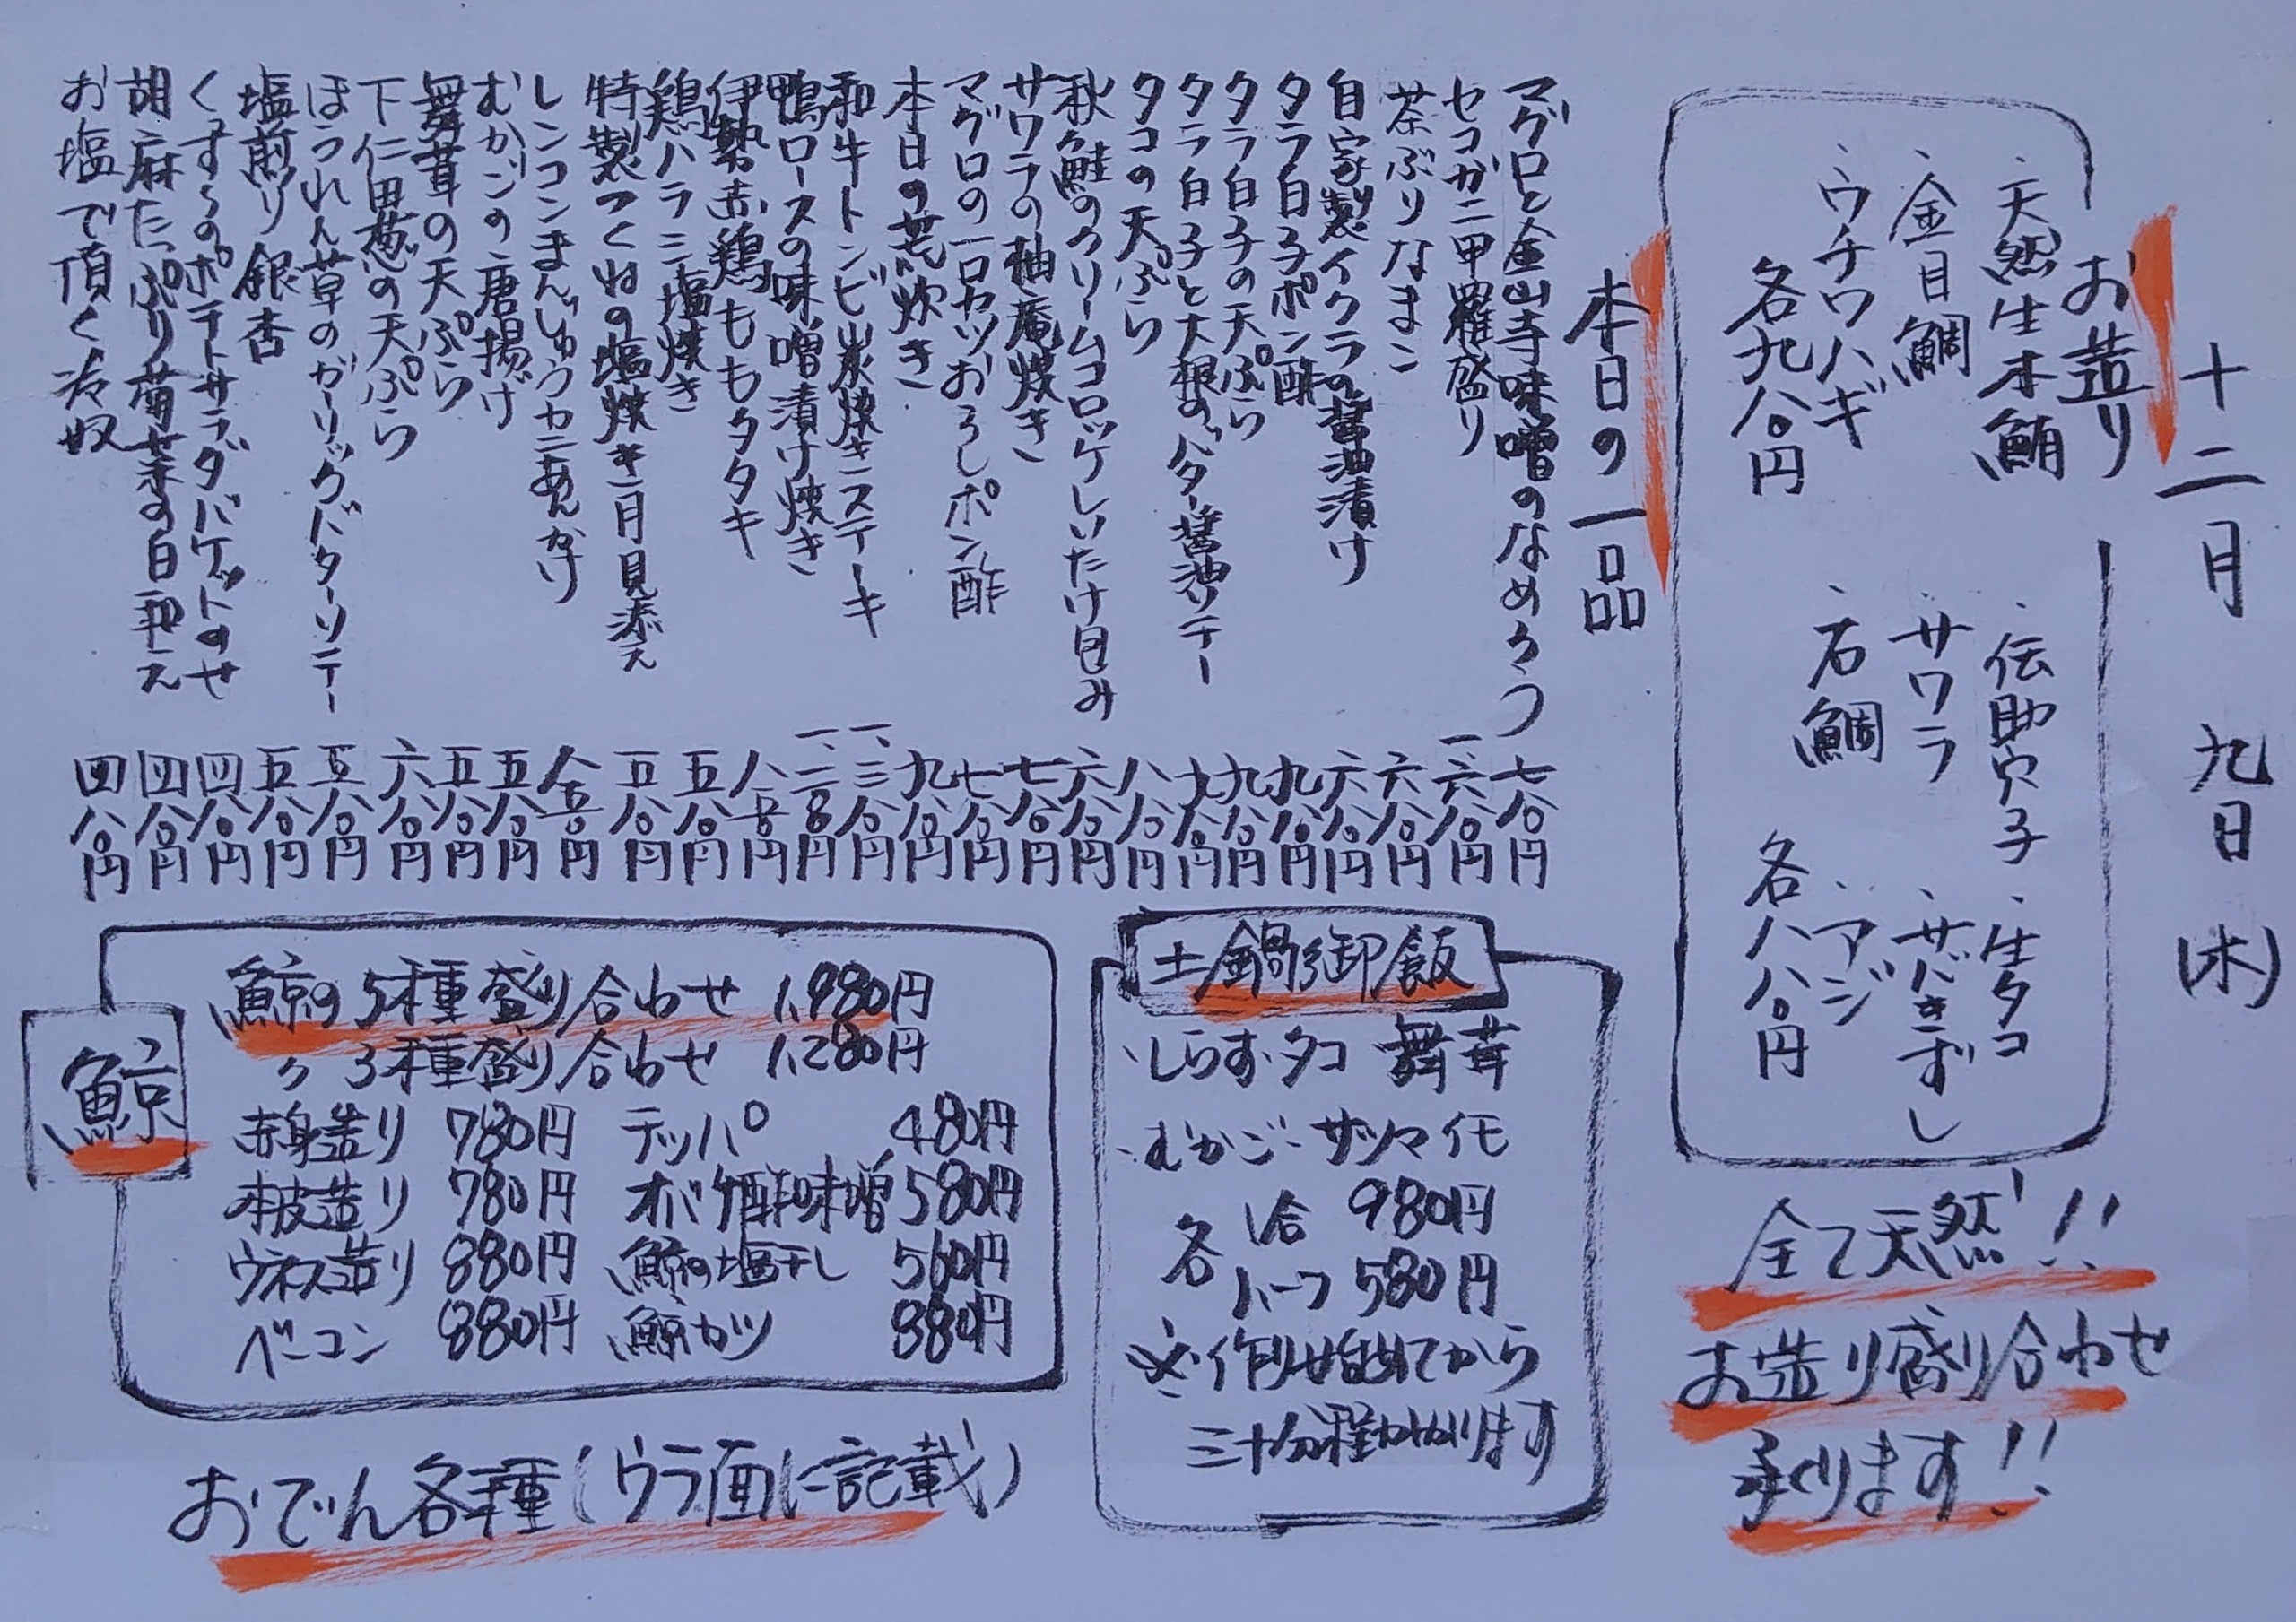 十二月 九日 (木)
お造り
・天然生本鮪
・金目鯛
・ウチワハギ
各九八〇円
・伝助穴子
・サワラ
・石鯛
・生タコ
・サバきずし
・アジ
各八八〇円
全て天然!!
お造り盛り合わせ
承ります!!
本日の一品
マグロと金山寺味噌のなめろう 七八〇円
セコガニ甲羅盛り 一、六八〇円
茶ぶりなまこ 六八〇円
自家製イクラの醤油漬け 六八〇円
タラ白子ポン酢 九八〇円
タラ白子の天ぷら 九八〇円
タラ白子と大根のバター醤油ソテー 九八〇円
タコの天ぷら 八八〇円
秋鮭のクリームコロッケしいたけ包み 六八〇円
サワラの柚庵焼き 七八〇円
マグロの一口カツおろしポン酢 七八〇円
本日の荒炊き 九八〇円
和牛トンビ炭焼きステーキ 一、三八〇円
鴨ロースの味噌漬け焼き 一、二八〇円
伊勢赤鶏ももタタキ 八五〇円
鶏ハラミ塩焼き 五八〇円
特製つくねの塩焼き 月見添え 五八〇円
レンコンまんじゅうカニあんかけ 八五〇円
むかごの唐揚げ 五八〇円
舞茸の天ぷら 五八〇円
下仁田葱の天ぷら 六八〇円
ほうれん草のガーリックバターソテー 五八〇円
塩煎り銀杏 五八〇円
くずしポテトサラダバケットのせ 四八〇円
胡麻たっぷり菊菜の白和え 四八〇円
お塩で頂く冷奴 四八〇円
土鍋御飯
・しらす・タコ 舞茸
・むかご・サツマイモ
各 1合 980円
ハーフ 580円
※作り始めてから
三十分程かかります
鯨
鯨の5種盛り合わせ 1,980円
〃 3種盛り合わせ 1,280円
赤身造り 780円 テッパ 480円
本皮造り 780円 オバケ酢味噌 580円
ウネス造り 880円 鯨の塩干し 560円
ベーコン 880円 鯨カツ 880円
おでん各種(ウラ面に記載)